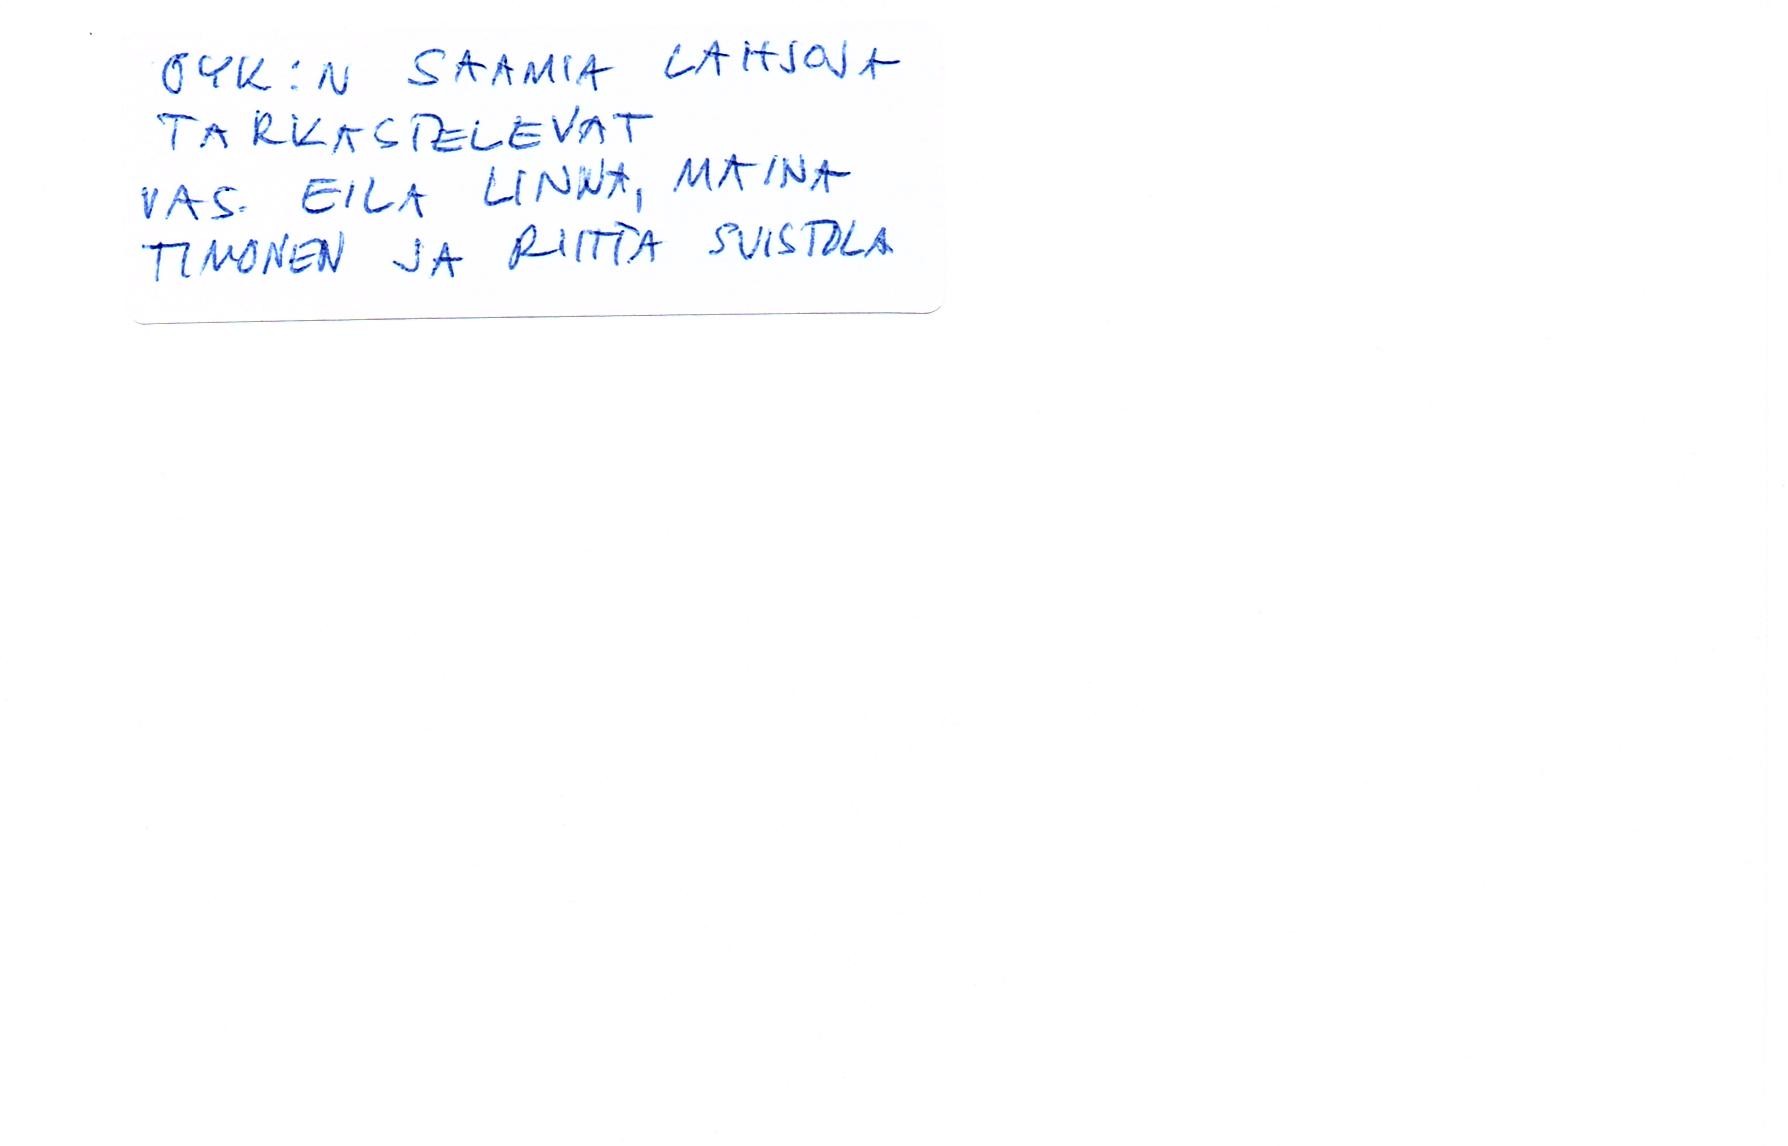 OYK:N SAAMIA LAHJOJA
TARKASTELEVAT
VAS. EILA LINNA, MAINA
TIMONEN JA RIITTA SUISTOLA